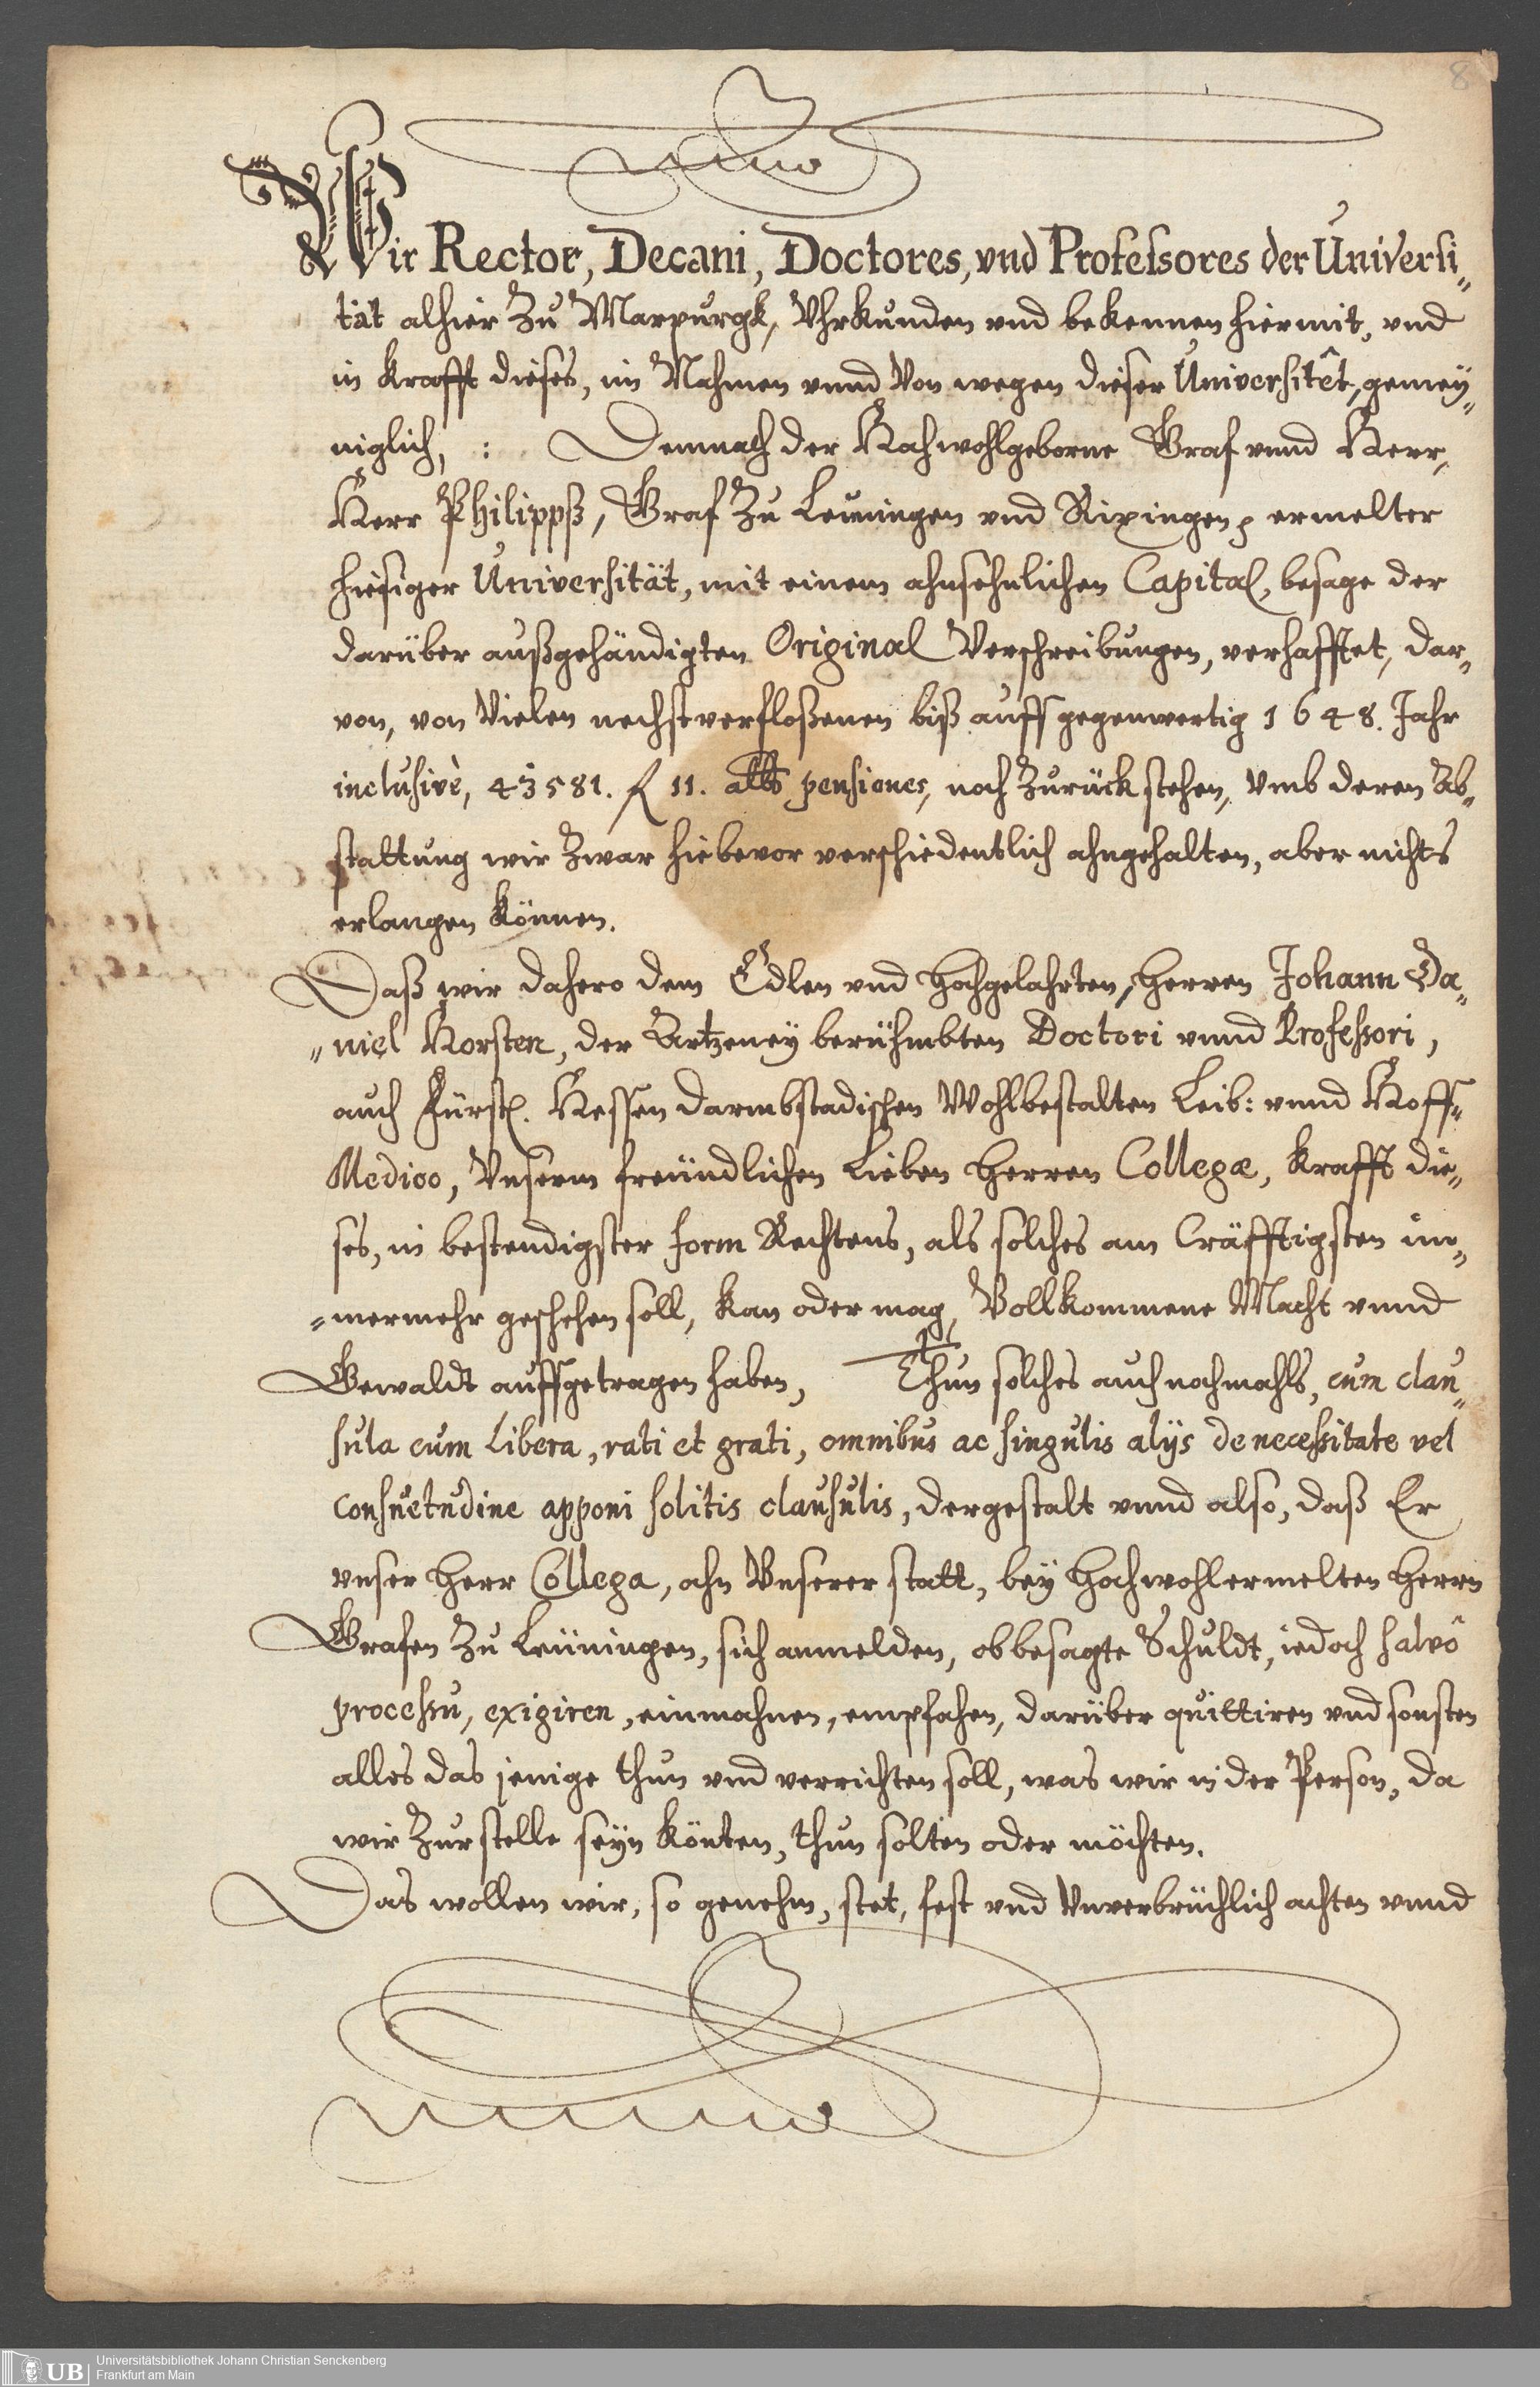 8
Wir Rector, Decani, Doctores, vnd Professores der Universi„
tät alhier Zu Marpurgk, Vhrkunden vnd bekennen hiermit, vnd
in krafft dieses, im Nahmen vnnd Von wegen dieser Universitêt, gemey„
niglich, : Demnach der Hochwohlgeborne Graf vnnd Herr,
Herr Philippß, Graf Zu Leiningen vnd Rixingen, ermelter
hiesiger Universität, mit einem ahnsehnlichen Capital, besage der
darüber außgehändigten Original Verschreibungen, verhafftet, dar„
von, von Vielen nechstverfloßenen biß auff gegenwertig 1648. Jahr
inclusivè, 43581. fl 11. alb pensiones, noch Zurück stehen, Vmb deren Ab„
stattung wir Zwar hiebevor verschiedentlich ahngehalten, aber nichts
erlangen können.
Daß wir dahero dem Edlen vnd Hochgelahrten, Herren Johann Da„
„niel Horsten, der Artzeney berühmbten Doctori vnnd Professori,
auch Fürstl. Hessen Darmbstadischen Wohlbestalten Leib: vnnd Hoff„
Medico, Vnserm freündlichen Lieben Herren Collegæ, krafft die„
ses, in bestendigster form Rechtens, als solches am Cräfftigsten im„
„mermehr geschehen soll, kan oder mag, Vollkommene Macht vnnd
Gewaldt auffgetragen haben, Thun solches auch nochmahls, cum clau„
sula cum Libera, rati et grati, omnibus ac singulis alijs de necessitate vel
consuetudine apponi solitis clausulis, dergestalt vnnd also, daß Er
vnser Herr Collega, ahn Vnserer statt, bey Hochwohlermelten Herrn
Grafen Zu Leüningen, sich anmelden, obbesagte Schuldt, iedoch salvô
processu, exigiren, einmahnen, empfahen, darüber quittiren vnd sonsten
alles das jenige thun vnd verrichten soll, was wir in der Person, da
wir Zur stelle seyn könten, thun solten oder möchten.
Das wollen wir, so genehm, stet, fest vnd Vnverbrüchlich achten vnnd
UB
Universitätsbibliothek Johann Christian Senckenberg
Frankfurt am Main